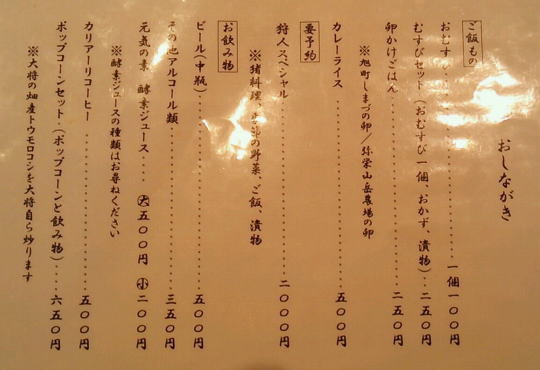 おしながき
ご飯もの
おむすび……………………一個一〇〇円
むすびセット(おむすび一個、おかず、漬物)…二五〇円
卵かけごはん……………………二五〇円
※旭町しまづの卵／弥栄山岳農場の卵
カレーライス……………………五〇〇円
要予約
狩人スペシャル……………………二〇〇〇円
※猪料理、の野菜、ご飯、漬物
お飲み物
ビール(中瓶)……………………五〇〇円
その他アルコール類……………………三五〇円
元気の素 酵素ジュース……大五〇〇円 小二〇〇円
※酵素ジュースの種類はお尋ねください
カリアーリコーヒー……………………五〇〇円
ポップコーンセット…(ポップコーンと飲み物)……六五〇円
※大将の畑産トウモロコシを大将自ら炒ります